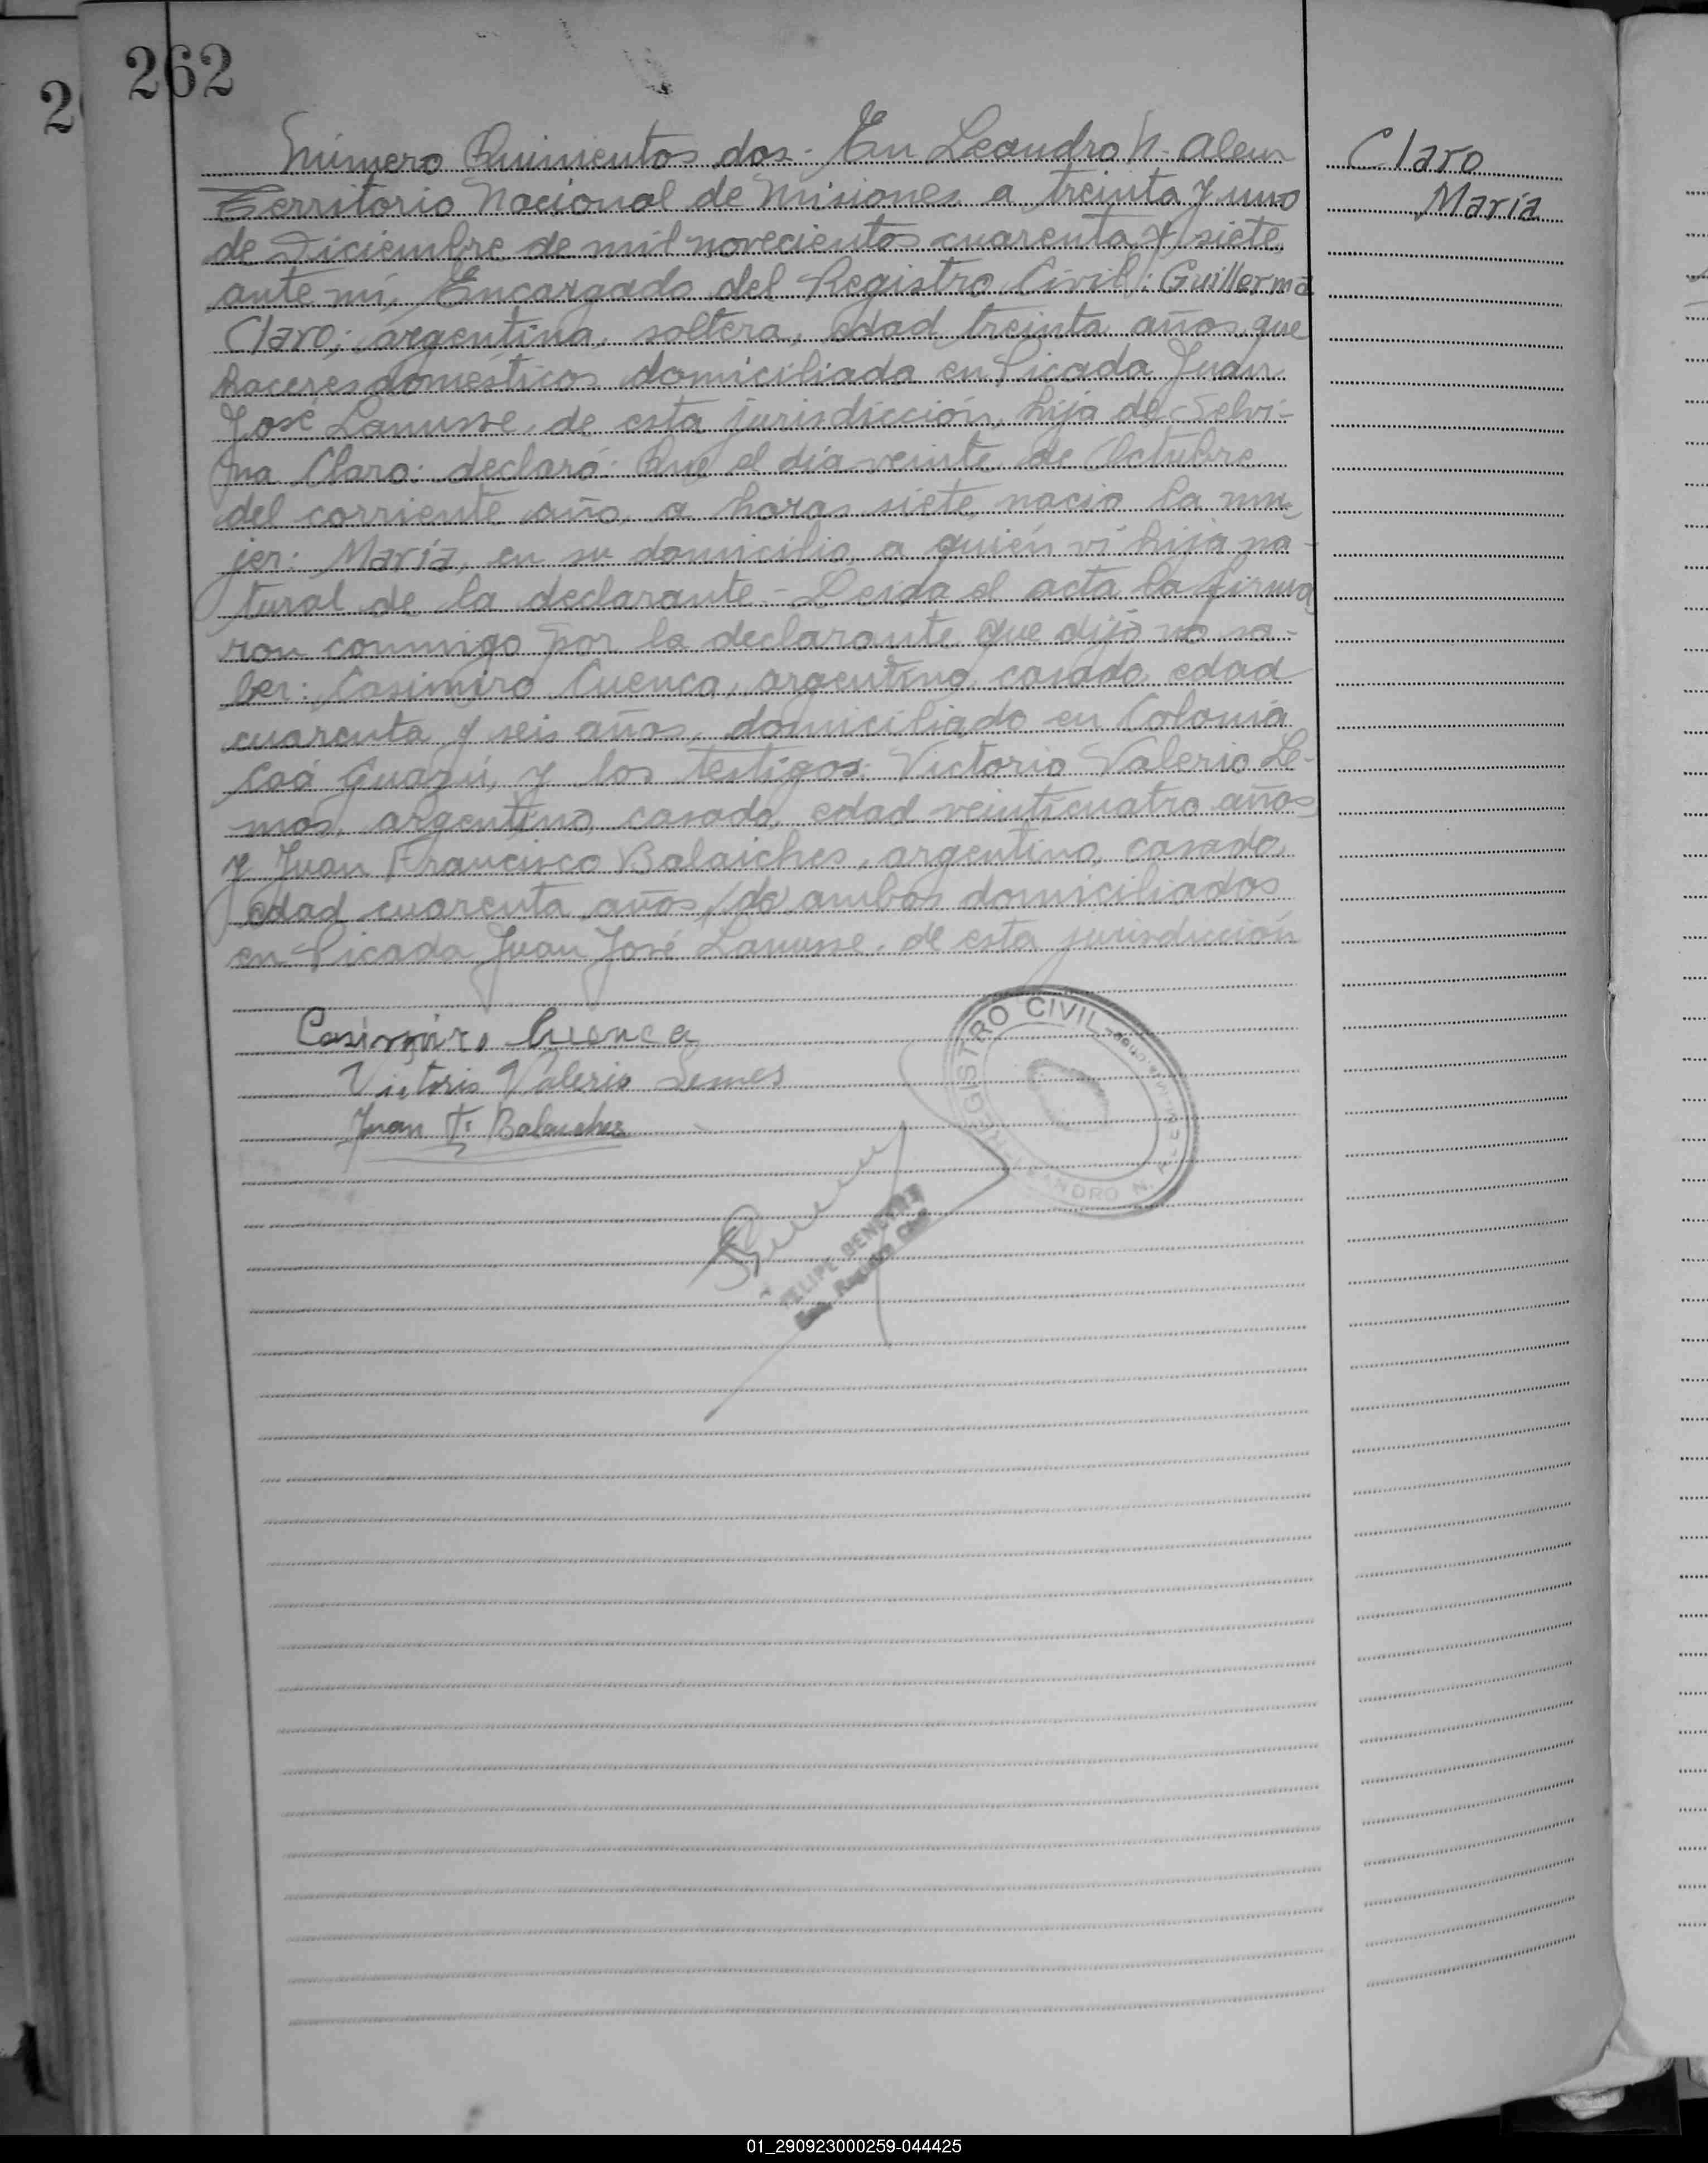 262
2
Número Quinientos dos- En Leandro N. Alem
Territorio Nacional de Misiones a treinta y uno
de Diciembre de mil novecientos cuarenta y siete,
ante mí, Encargado del Registro Civil: Guillerma
Claro; argentina, soltera, edad treinta años, que
haceres domésticos domiciliada en Picada Juan
José Lanusse, de esta jurisdicción, hija de Selvi-
na Claro: declaró: Que el día veinte de Octubre
del corriente año, a horas siete nació la mu-
jer: María, en su domicilio, a quién vi hija na-
tural de la declarante.- Leida el acta la firma
ron conmigo por la declarante que dijo no sa-
ber: Casimiro Cuenca, argentino, casado, edad
cuarenta y seis años, domiciliado en Colonia
Caá Guazú, y los testigos: Victorio Valerio Le-
mos, argentino, casado, edad veinticuatro años
y Juan Francisco Balaiches, argentino, casado,
edad cuarenta años, ambos domiciliados
en Picada Juan José Lanusse, de esta jurisdicción
Casimiro Cuenca
Victorio Valerio Lemes
Juan F. Balaiches
REGISTRO CIVIL
LEANDRO N.
FELIPE
Registro Civil
Claro
María
01_290923000259-044425